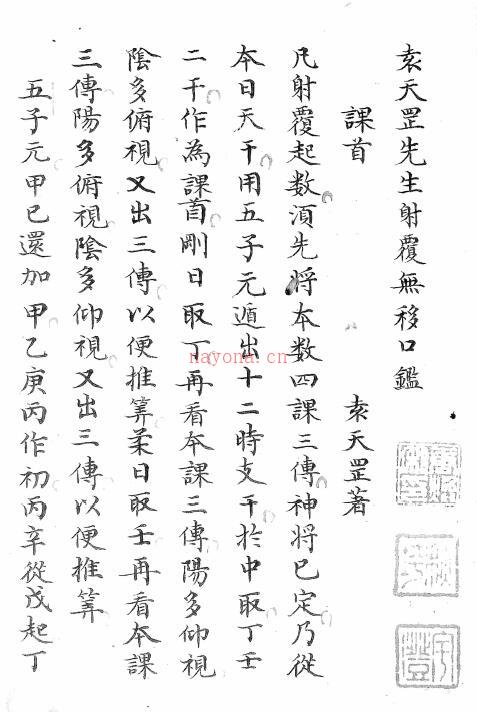 袁天罡先生射覆無移口鑑
課首
袁天罡著
凡射覆起数湏先将本数四課三傳神将已定乃從
本日天干用五子元遁出十二時支干於中取丁壬
二干作為課首剛日取丁再看本課三傳陽多仰視
陰多俯視又出三傳以便推筭柔日取壬再看本課
三傳陽多俯視陰多仰視又出三傳以便推筭
五子元甲己還加甲乙庚丙作初丙辛從戊起丁
nayona.cn